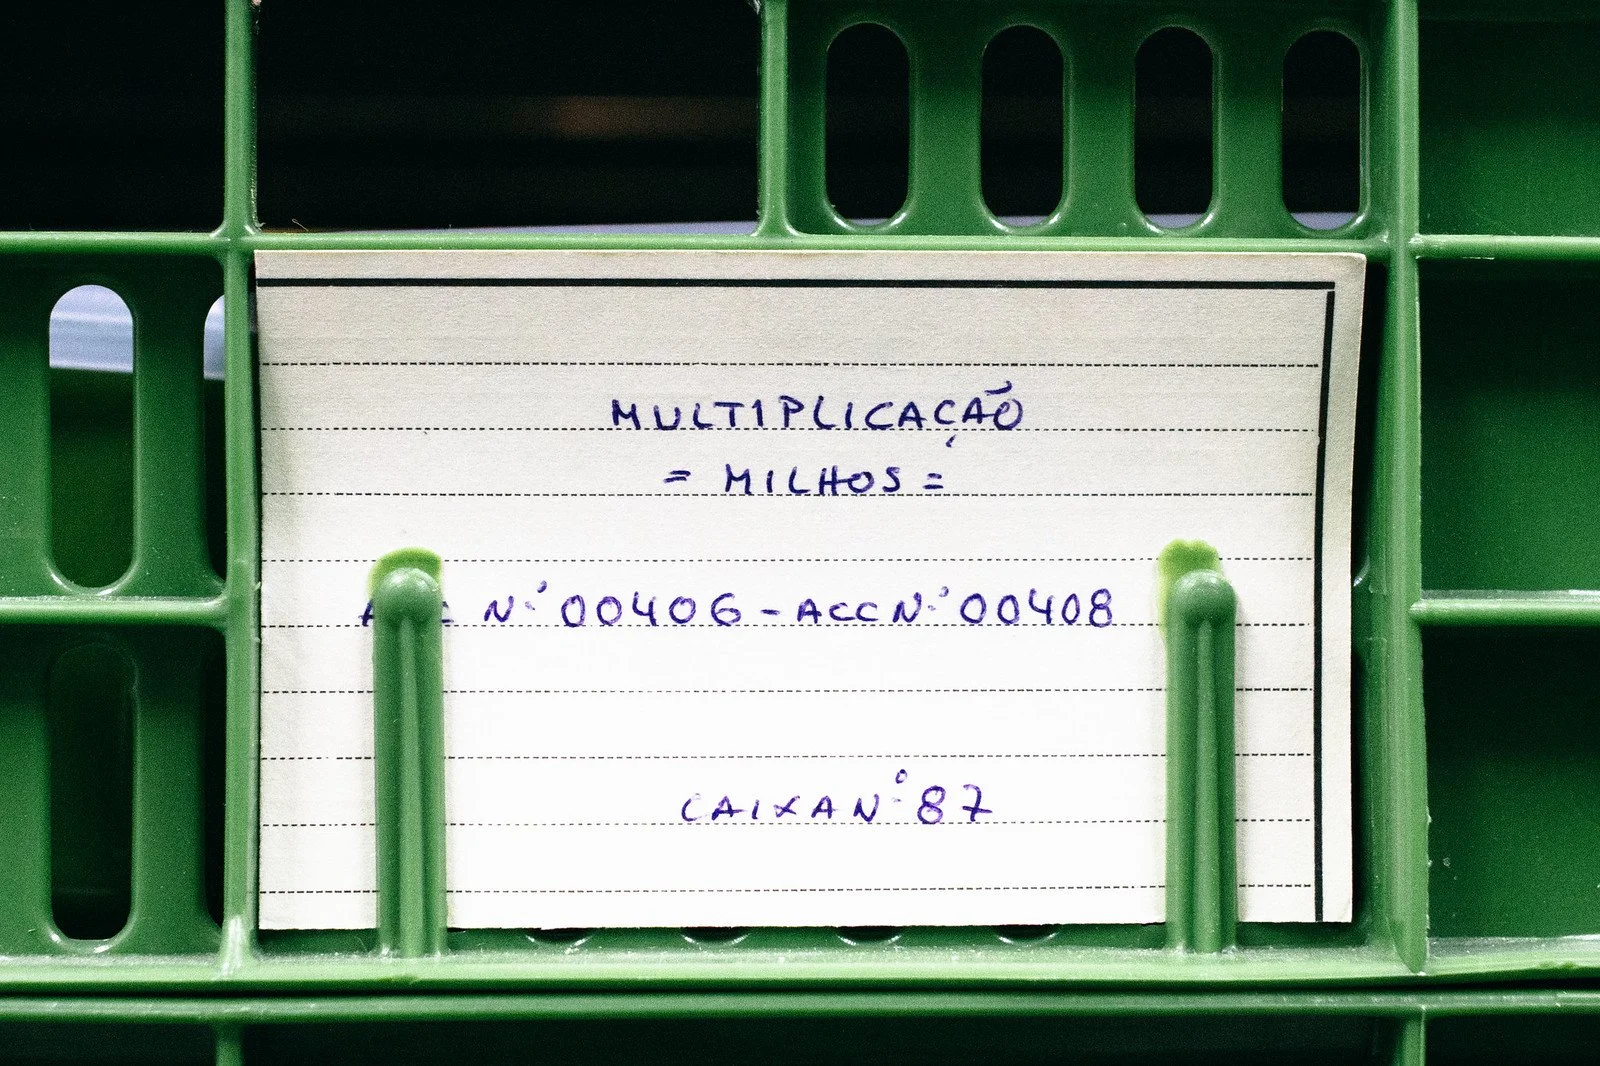 MULTIPLICAÇÃO
= MILHOS =
Nº 00406 - ACC Nº 00408
CAIXA Nº 87